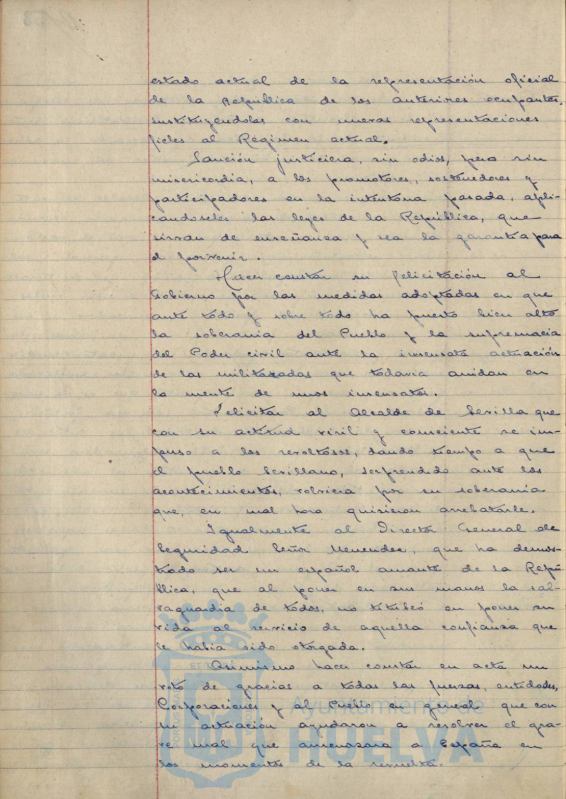 estado actual de la representación oficial
de la República de los anteriores ocupantes,
sustituyéndolos con nuevas representaciones
fieles al Régimen actual.
Sanción justiciera, sin odios, pero sin
misericordia, a los promotores, sostenedores y
participadores en la intentona pasada, apli-
cándoseles las leyes de la República, que
sirvan de enseñanza y sea la garantía para
el porvenir.
Hacer constar su felicitación al
Gobierno por las medidas adoptadas en que
ante todo y sobre todo ha puesto bien alto
la soberanía del Pueblo y la supremacía
del Poder civil ante la insensata actuación
de las militaradas que todavía anidan en
la mente de unos insensatos.
Felicitar al Alcalde de Sevilla que
con su actitud viril y consciente se im-
puso a los revoltosos, dando tiempo a que
el pueblo Sevillano, sorprendido ante los
acontecimientos, volviera por su soberanía
que, en mal hora quisieron arrebatarle.
Igualmente al Director General de
Seguridad Señor Menendez, que ha demos-
trado ser un español amante de la Repú-
blica, que al poner en sus manos la sal-
vaguardia de todos, no titubeó en poner su
vida al servicio de aquella confianza que
le había sido otorgada.
Asimismo hacer constar en acta un
voto de gracias a todas las fuerzas, entidades,
Corporaciones y al Pueblo en general que con
su actuación ayudaron a resolver el gra-
ve mal que amenazara a España en
los momentos de la revuelta.
Ayuntamiento de
HUELVA